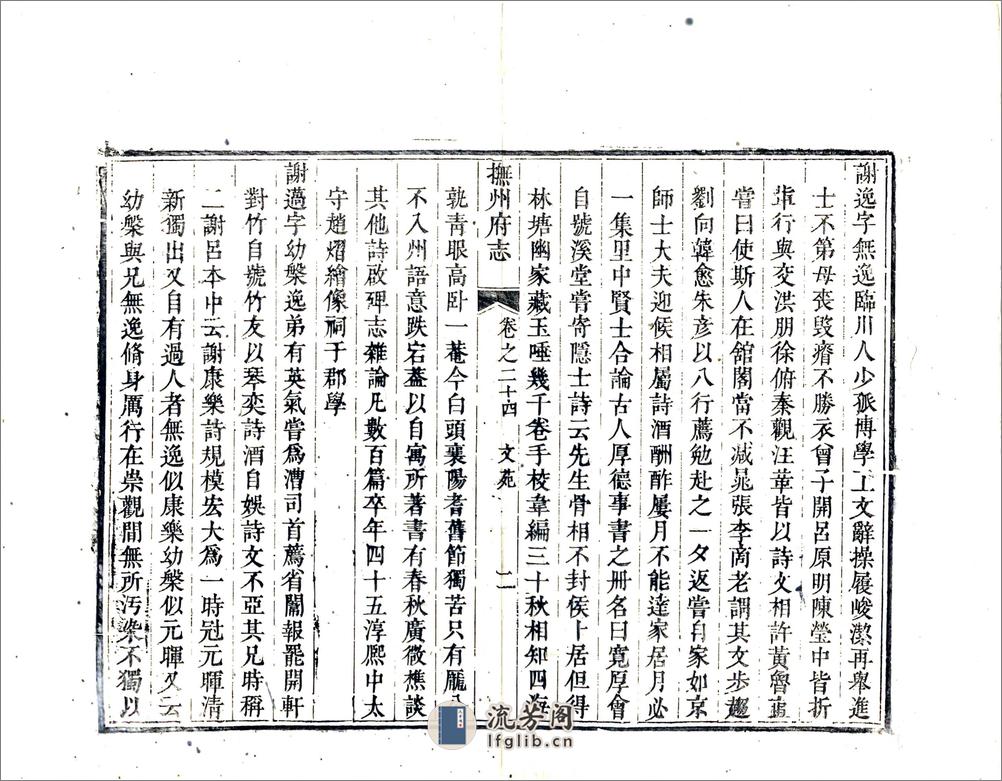 謝逸字無逸臨川人少孤博學工文辭操履峻潔再舉進
士不第母喪毀瘠不勝衣曾子開呂原明陳瑩中皆折
輩行與交洪朋徐俯秦觀汪革皆以詩文相許黃魯直
嘗曰使斯人在舘閣當不减晁張李商老謂其文步趨
劉向韓愈朱彥以八行薦勉赴之一夕返嘗自家如京
師士大夫迎候相屬詩酒酬酢屢月不能達家居月必
一集里中賢士合論古人厚德事書之册名曰寬厚會
自號溪堂嘗寄隱士詩云先生骨相不封侯卜居但得
林塘幽家藏玉唾幾千卷手校韋編三十秋相知四海
撫州府志
卷之二十四 文苑 二
孰青眼高卧一菴今白頭襄陽耆舊節獨苦只有龐公
不入州語意跌宕蓋以自寓所著書有春秋廣微樵談
其他詩啟碑志雜論凡數百篇卒年四十五淳熙中太
守趙熠繪像祠于郡學
謝薖字幼槃逸弟有英氣嘗爲漕司首薦省闈報罷開軒
對竹自號竹友以琴奕詩酒自娛詩文不亞其兄時稱
二謝呂本中云謝康樂詩規模宏大爲一時冠元暉清
新獨出又自有過人者無逸似康樂幼槃似元暉又云
幼槃與兄無逸脩身厲行在崇觀間無所汚染不獨以
流芳阁
lfglib.cn